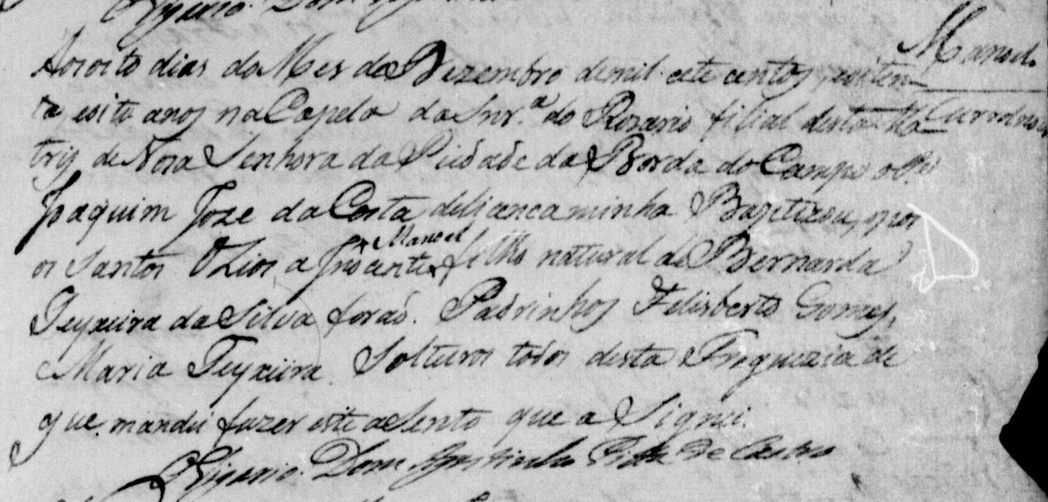 Vigario. Dom
Aoroito dias do Mes de Dezembro de mil cete centos, eoiten
Manoel
ta eoito anos na Capela da Snr.ª do Rozario filial desta Ma
triz de Nosa Senhora da Piedade da Borda do Campo o Pe
Joaquim Joze da Costa de liancaminha Bapitizou, epos
os Santos Olios a Inocente Manoel filho natural de Bernarda
Teyxeira da Silva foraõ. Padrinhos Felisberto Gomes,
Maria Teyxeira. Solteiros todos desta Freguezia de
que mandei fazer este asento que a Signei.
O Vigario. Dom Agostinho Pitta de Castro